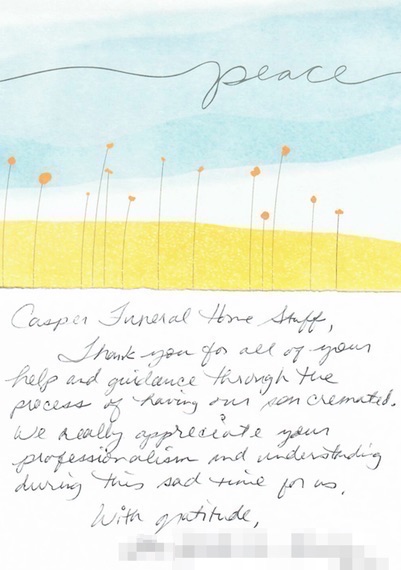 peace
Casper Funeral Home Staff,
Thank you for all of your
help and guidance through the
process of having our son cremated.
We really appreciate your
professionalism and understanding
during this sad time for us.
With gratitude,